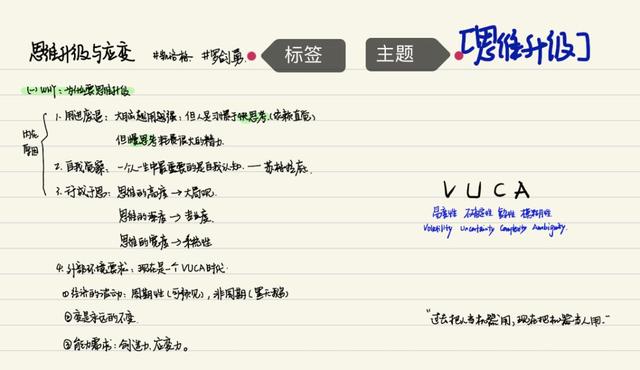 思维升级与应变 #数洽格. #罗剑勇
标签
主题
[思维升级]
(一) WHY: 为什么要思维升级
内在
原因
1. 用进废退: 大脑越用越强; 但人是习惯于快思考(依赖直觉)
但慢思考耗费很大的精力.
2. 自我觉察: 一个人一生中最重要的是自我认知. ——苏格拉底.
3. 行成于思: 思维的高度→大局观.
思维的深度→
思维的宽度→系统性
4. 外部环境要求: 现在是一个VUCA时代.
①经济的波动: 周期性(可预见), 非周期(黑天鹅)
②变是永远的不变.
③能力要求: 创造力, 应变力.
VUCA
易变性 不确定性 复杂性 模糊性
Volatility Uncertainty Complexity Ambiguity.
"过去把人当机器用, 现在把机器当人用."